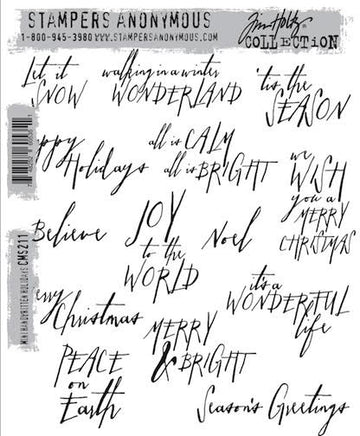 STAMPERS ANONYMOUS
1-800-945-3980 WWW.STAMPERSANONYMOUS.COM
Tim Holtz
COLLECTION
Let it
SNOW
walking in a winter
WONDERLAND
'tis the
SEASON
ppy
Holidays
all is CALM
all is BRIGHT
we
WISH
you a
MERRY
CHRISTMAS
Believe
JOY
to the
WORLD
Noel
it's a
WONDERFUL
life
MINI HANDWRITTEN HOLIDAYS CMS211
erry
Christmas
MERRY
& BRIGHT
PEACE
on
Earth
Season's Greetings